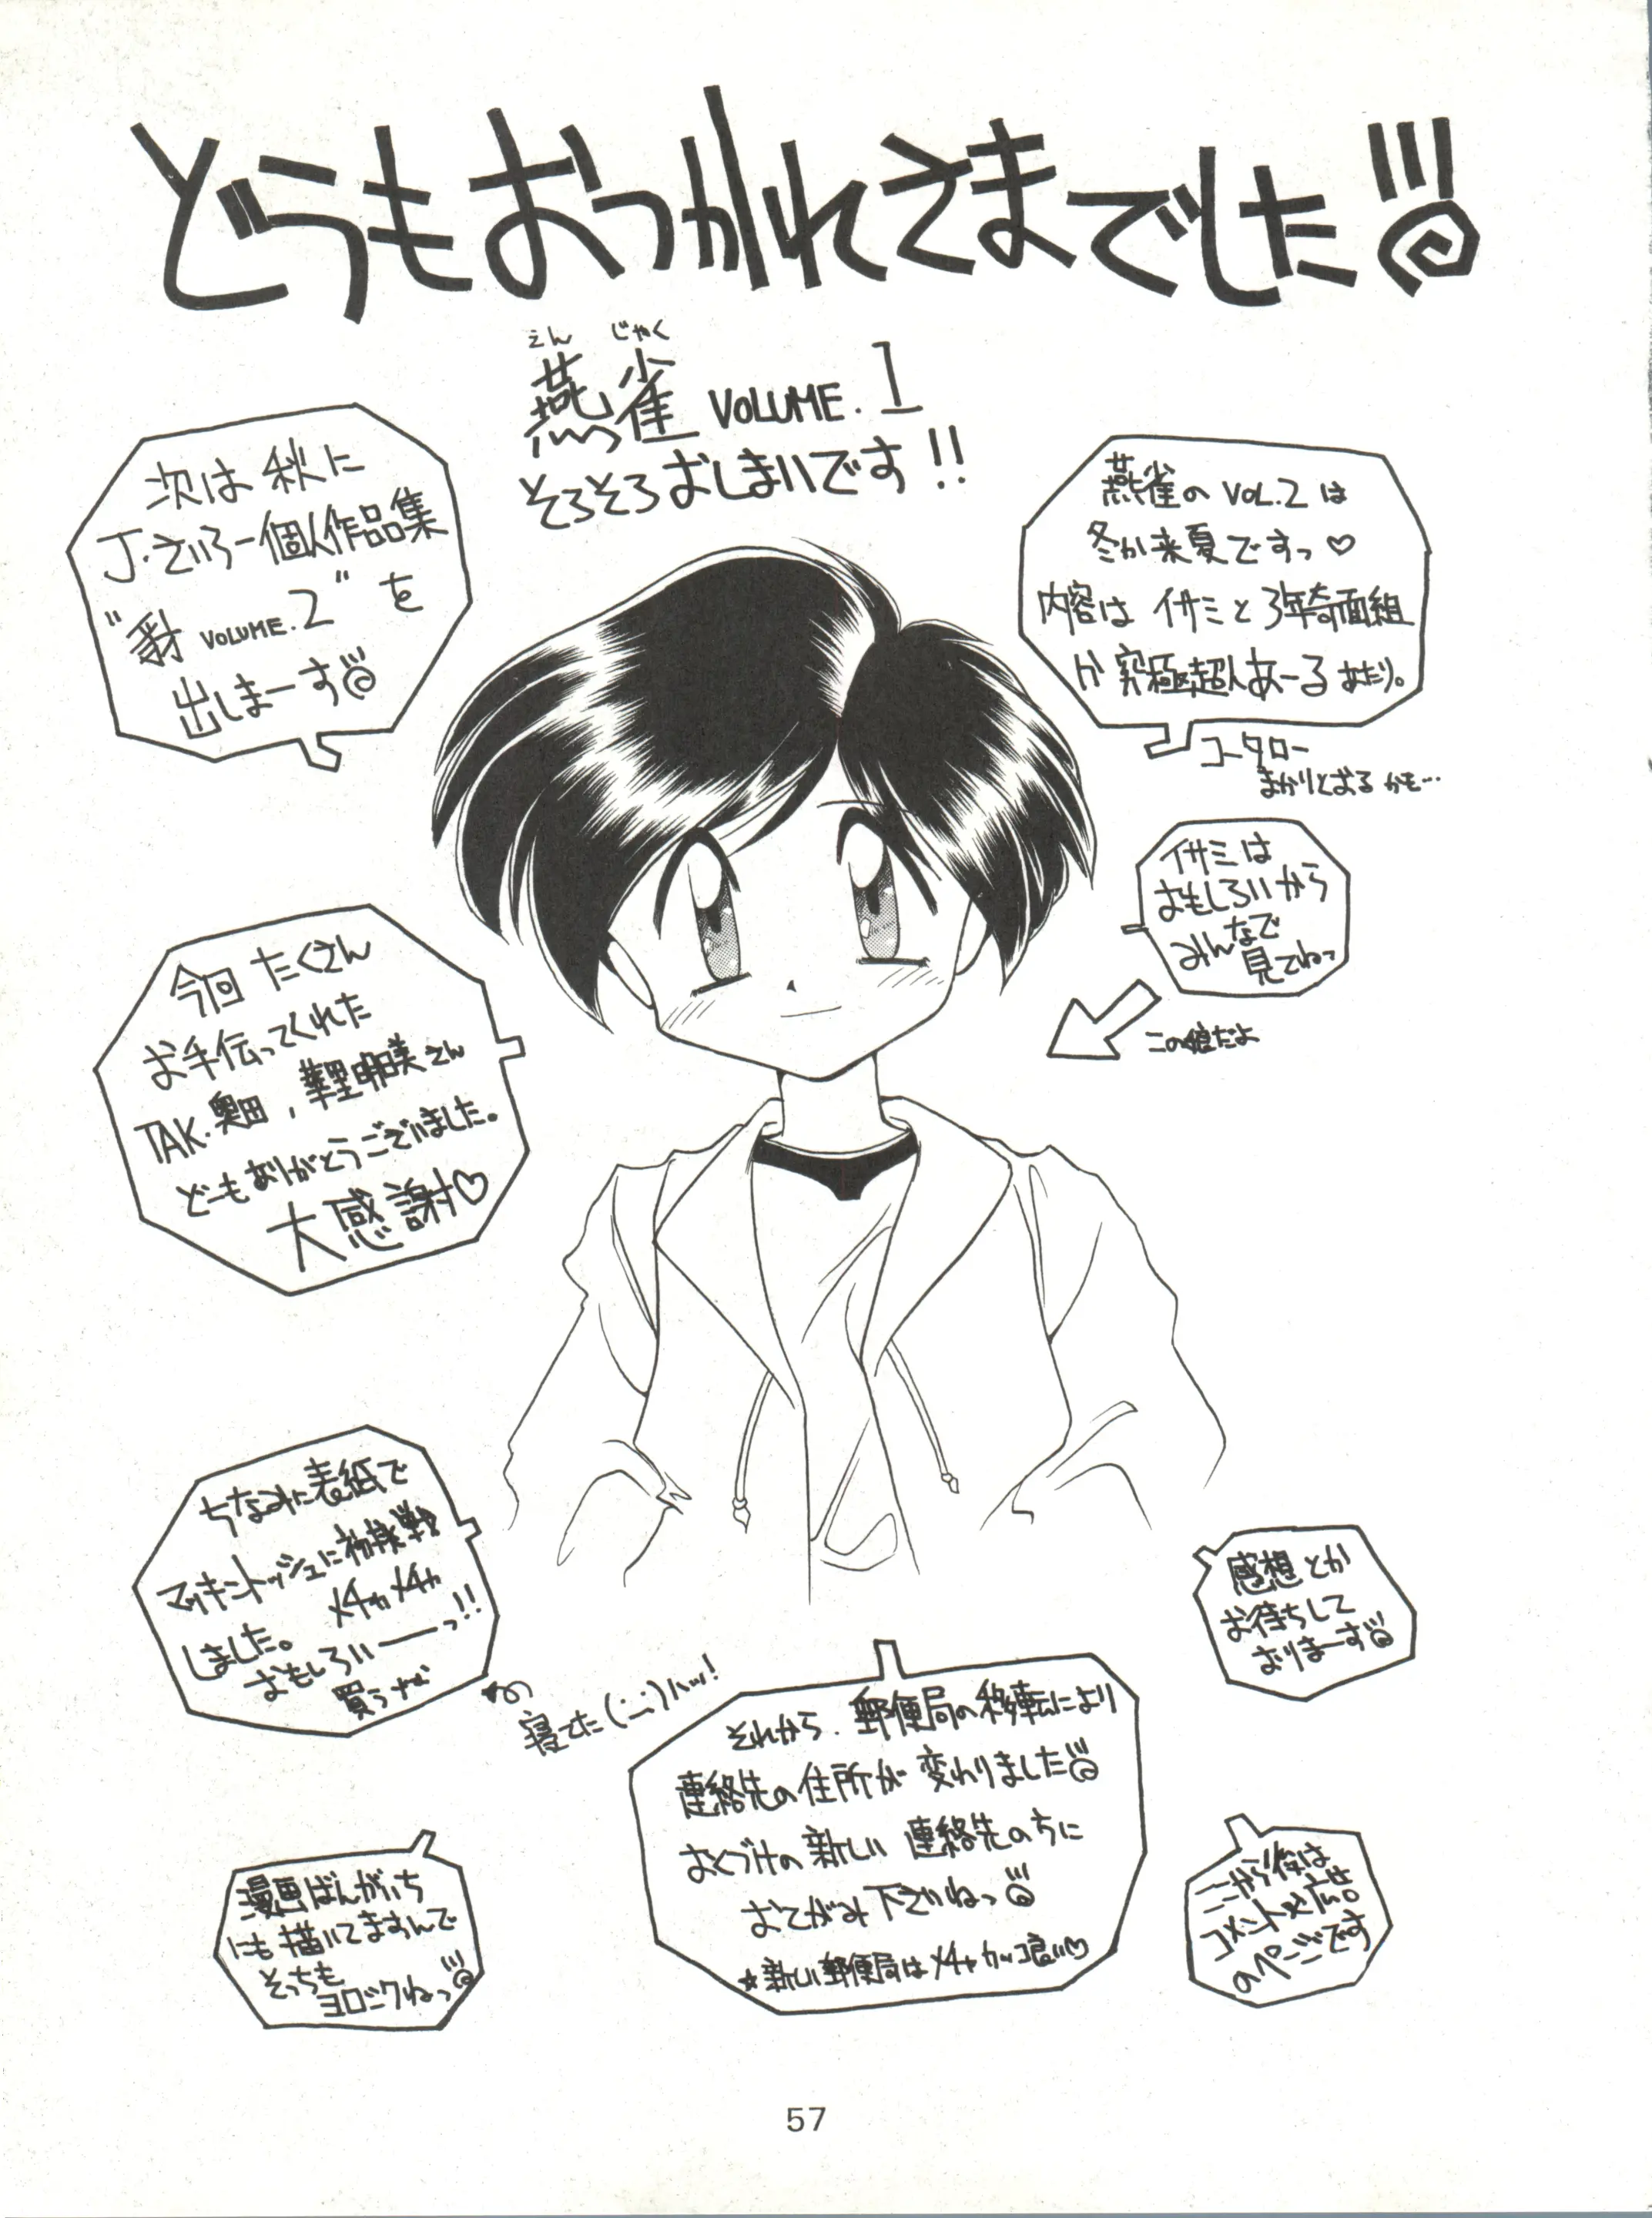 どうもおつかれさまでした!!!
えん じゃく
燕雀 VOLUME.1
そろそろおしまいです!!
燕雀の VOL.2 は
冬か来夏ですっ♡
内容は イサミと 3年奇面組
か 究極超人あ〜る あたり。
コータロー
まかりとおる かも…
次は 秋に
J・さいろー個人作品集
VOLUME.2" を
出しまーす
イサミは
おもしろいから
みんなで
見てねっ
この娘だよ
今回 たくさん
お手伝ってくれた
TAK.奥田, 亜美さん
どーもありがとうございました。
大感謝♡
ちなみに表紙で
マッキントッシュに初挑戦
しました。 メチャメチャ
おもしろいーーっ!!
買うぜ
寝てた(;;)ハッ!
感想とか
お待ちして
おりまーす
それから、郵便局の移転により
連絡先の住所が 変わりました
おくづけの 新しい 連絡先のちに
おてがみ下さいねっ
☆新しい郵便局はメチャカッコ良い♡
漫画ばんがいち
にも 描いてますんで
そっちも
ヨロシクねっ
ここから後は
コメントや広告
のページです
57